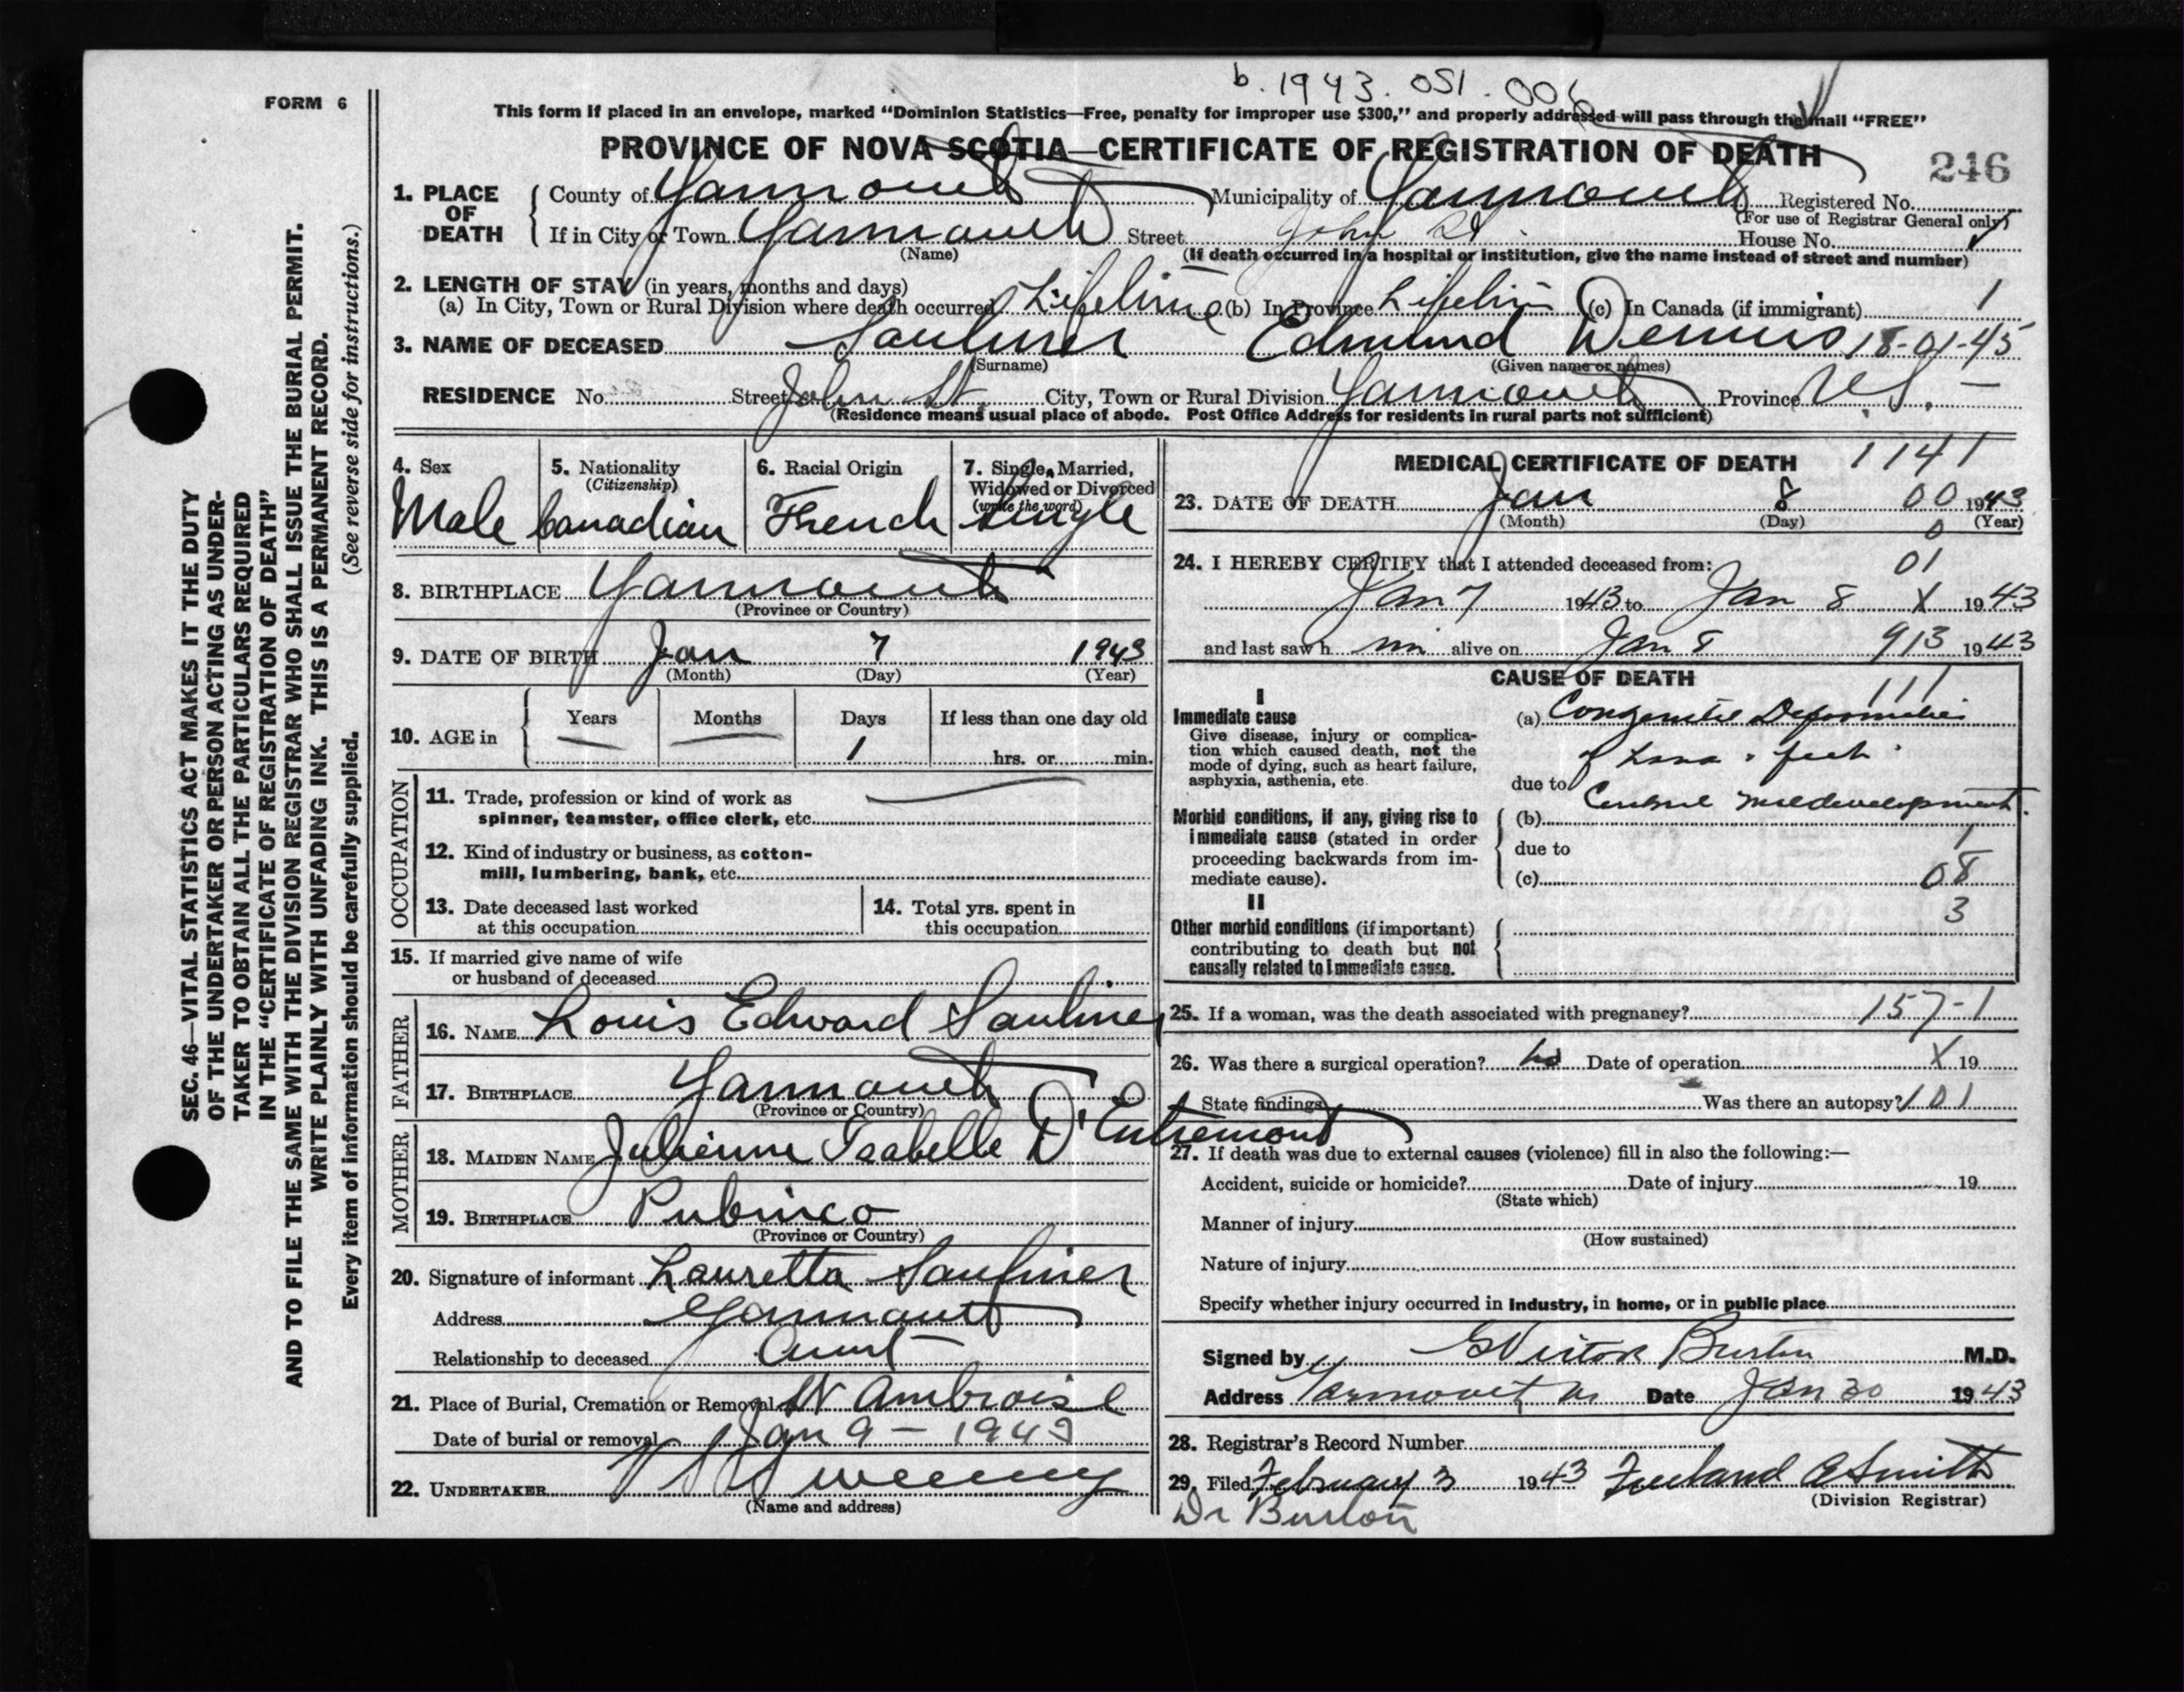 b. 1943. 051. 006
FORM 6
This form if placed in an envelope, marked “Dominion Statistics—Free, penalty for improper use $300,” and properly addressed will pass through the mail “FREE”
PROVINCE OF NOVA SCOTIA—CERTIFICATE OF REGISTRATION OF DEATH
246
1. PLACE OF DEATH
County of Yarmouth Municipality of Yarmouth Registered No.
(For use of Registrar General only)
If in City or Town Yarmouth Street John St. House No.
(Name) (If death occurred in a hospital or institution, give the name instead of street and number)
2. LENGTH OF STAY (in years, months and days)
(a) In City, Town or Rural Division where death occurred Lifetime (b) In Province Lifetime (c) In Canada (if immigrant) 1
3. NAME OF DECEASED Saulnier Edmund Dennis 18-01-45
(Surname) (Given name or names)
RESIDENCE No. Street John St. City, Town or Rural Division Yarmouth Province N.S. —
(Residence means usual place of abode. Post Office Address for residents in rural parts not sufficient)
4. Sex
Male
5. Nationality
(Citizenship)
Canadian
6. Racial Origin
French
7. Single, Married,
Widowed or Divorced
(write the word)
Single
8. BIRTHPLACE Yarmouth
(Province or Country)
9. DATE OF BIRTH Jan 7 1943
(Month) (Day) (Year)
10. AGE in
Years Months Days If less than one day old
— — 1 hrs. or min.
OCCUPATION
11. Trade, profession or kind of work as
spinner, teamster, office clerk, etc. —
12. Kind of industry or business, as cotton-
mill, lumbering, bank, etc.
13. Date deceased last worked
at this occupation
14. Total yrs. spent in
this occupation
15. If married give name of wife
or husband of deceased
FATHER
16. NAME Louis Edward Saulnier
17. BIRTHPLACE Yarmouth
(Province or Country)
MOTHER
18. MAIDEN NAME Julienne Isabelle D'Entremont
19. BIRTHPLACE Pubnico
(Province or Country)
20. Signature of informant Lauretta Saulnier
Address Yarmouth
Relationship to deceased Aunt
21. Place of Burial, Cremation or Removal St Ambroise
Date of burial or removal Jan 9 – 1943
22. UNDERTAKER V S Sweeney
(Name and address)
MEDICAL CERTIFICATE OF DEATH 1141
23. DATE OF DEATH Jan 8 00 1943
(Month) (Day) (Year)
0
24. I HEREBY CERTIFY that I attended deceased from: 01
Jan 7 1943 to Jan 8 X 1943
and last saw him alive on Jan 8 913 1943
CAUSE OF DEATH
111
I
Immediate cause
Give disease, injury or complica-
tion which caused death, not the
mode of dying, such as heart failure,
asphyxia, asthenia, etc.
(a) Congenital Deformities
of hand & feet
due to
Cerebral Maldevelopment.
Morbid conditions, if any, giving rise to
immediate cause (stated in order
proceeding backwards from im-
mediate cause).
(b)
due to 1
(c) 08
3
II
Other morbid conditions (if important)
contributing to death but not
causally related to immediate cause.
25. If a woman, was the death associated with pregnancy? 157-1
26. Was there a surgical operation? No Date of operation X 19
State findings Was there an autopsy? 101
27. If death was due to external causes (violence) fill in also the following:—
Accident, suicide or homicide? Date of injury 19
(State which)
Manner of injury
(How sustained)
Nature of injury
Specify whether injury occurred in industry, in home, or in public place
Signed by G Victor Burton M.D.
Address Yarmouth NS Date Jan 30 1943
28. Registrar's Record Number
29. Filed February 3 1943 Freeland E Smith
(Division Registrar)
Dr Burton
SEC. 46—VITAL STATISTICS ACT MAKES IT THE DUTY
OF THE UNDERTAKER OR PERSON ACTING AS UNDER-
TAKER TO OBTAIN ALL THE PARTICULARS REQUIRED
IN THE “CERTIFICATE OF REGISTRATION OF DEATH”
AND TO FILE THE SAME WITH THE DIVISION REGISTRAR WHO SHALL ISSUE THE BURIAL PERMIT.
WRITE PLAINLY WITH UNFADING INK. THIS IS A PERMANENT RECORD.
Every item of information should be carefully supplied. (See reverse side for instructions.)